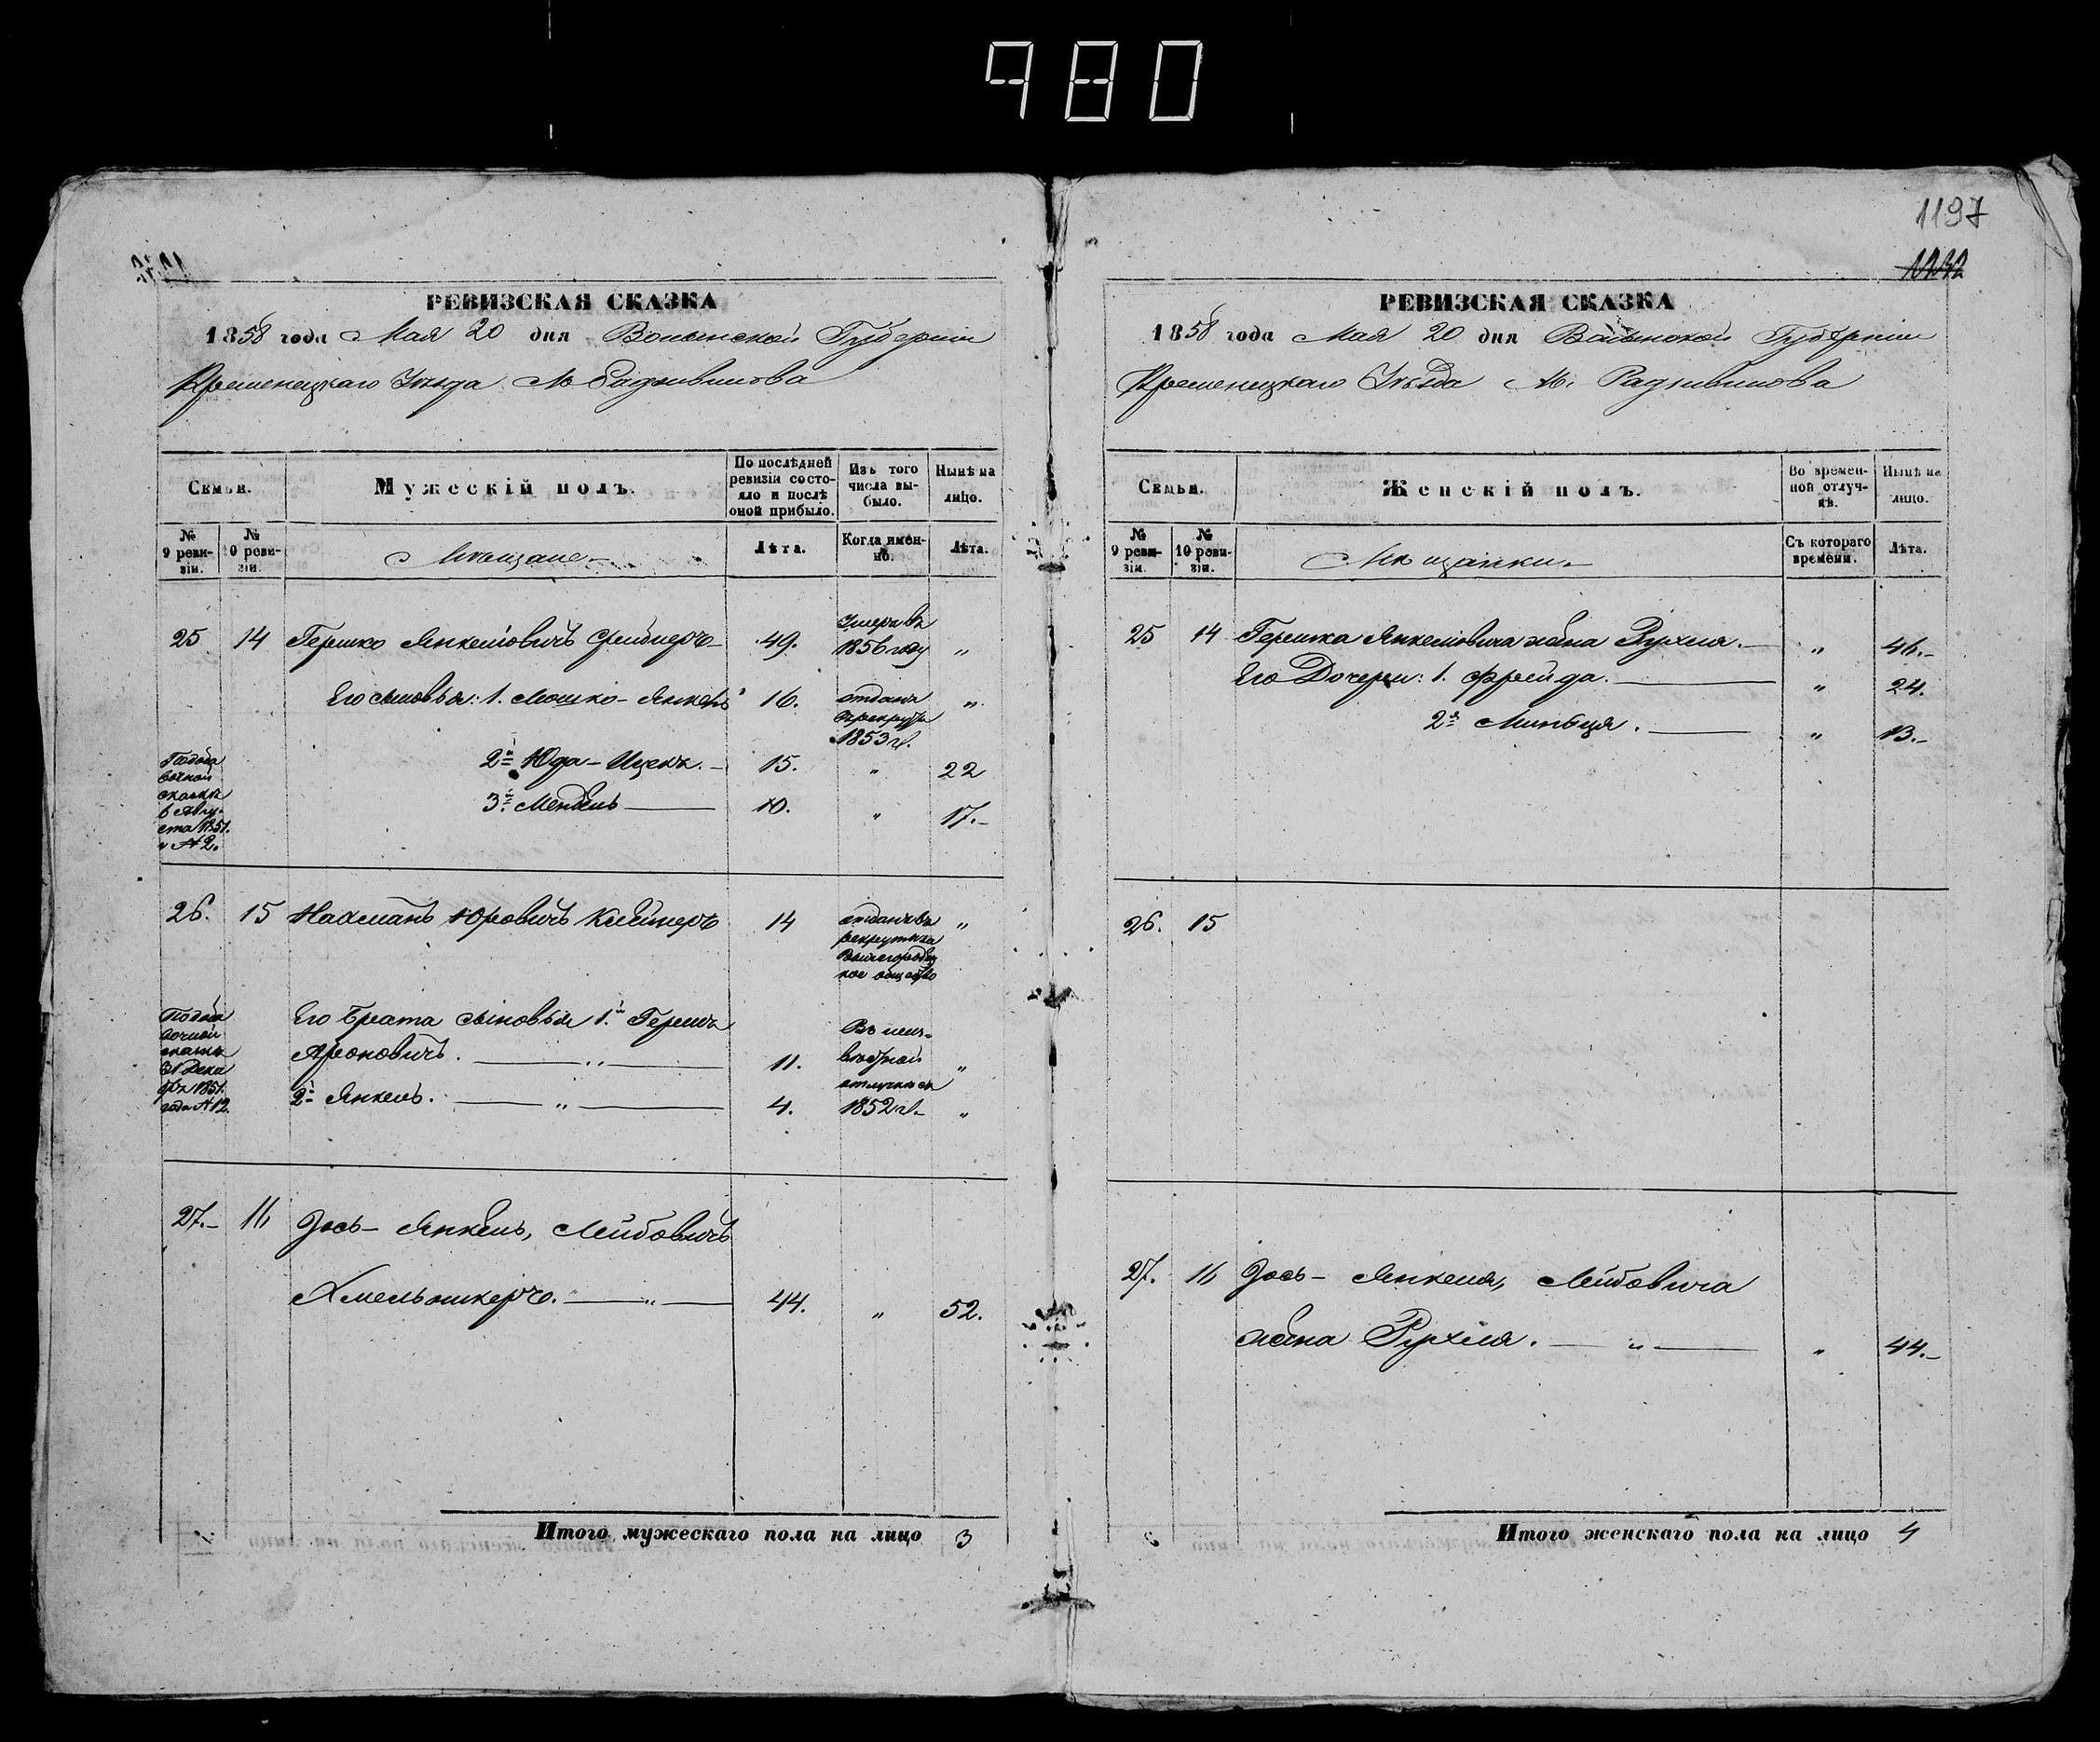 980
1197
1232
РЕВИЗСКАЯ СКАЗКА
1858 года Мая 20 дня Волынской Губерніи
Кременецкаго Уѣзда М. Радзивилова
Семьи.
Мужескій полъ.
По послѣдней ревизіи состояло и послѣ оной прибыло.
Изъ того числа выбыло.
Нынѣ на лицо.
№ 9 ревизіи.
№ 10 ревизіи.
Мѣщане
Лѣта.
Когда именно.
Лѣта.
25 14 Гершко Янкелiовичъ 49. Умеръ въ 1856 году „
Его сыновья: 1. Мошко-Янкель 16. отданъ в рекруты 1853 г. „
2й Юда-Ицекъ. 15. „ 22
3й Мендель 10. „ 17.
По добавочной сказкѣ 6 Августа 1851. № 2.
26. 15 Нахманъ Клейнеръ 14 отданъ въ рекруты за общество „
Его брата сыновья 1й Гершъ
Ароновичъ. „ 11. Въ неизвѣстной отлучкѣ съ 1852 г. „
2й Янкель. „ 4. „
По добавочной сказкѣ 31 Декабря 1851. года № 12.
27. 16 Зось-Янкель, Лейбовичъ
Хмельникеръ. „ 44. „ 52.
Итого мужескаго пола на лицо 3
РЕВИЗСКАЯ СКАЗКА
1858 года Мая 20 дня Волынской Губерніи
Кременецкаго Уѣзда М. Радзивилова
Семьи.
Женскій полъ.
Во временной отлучкѣ.
Нынѣ на лицо.
№ 9 ревизіи.
№ 10 ревизіи.
Мѣщанки
Съ котораго времени.
Лѣта.
25 14 Гершка Янкелiовича жена Рухля. „ 46.
Его Дочери: 1. Фрейда. „ 24.
2я Миньця. „ 13.
26. 15
27. 16 Зось-Янкеля, Лейбовича
жена Рухля. „ „ 44.
Итого женскаго пола на лицо 4